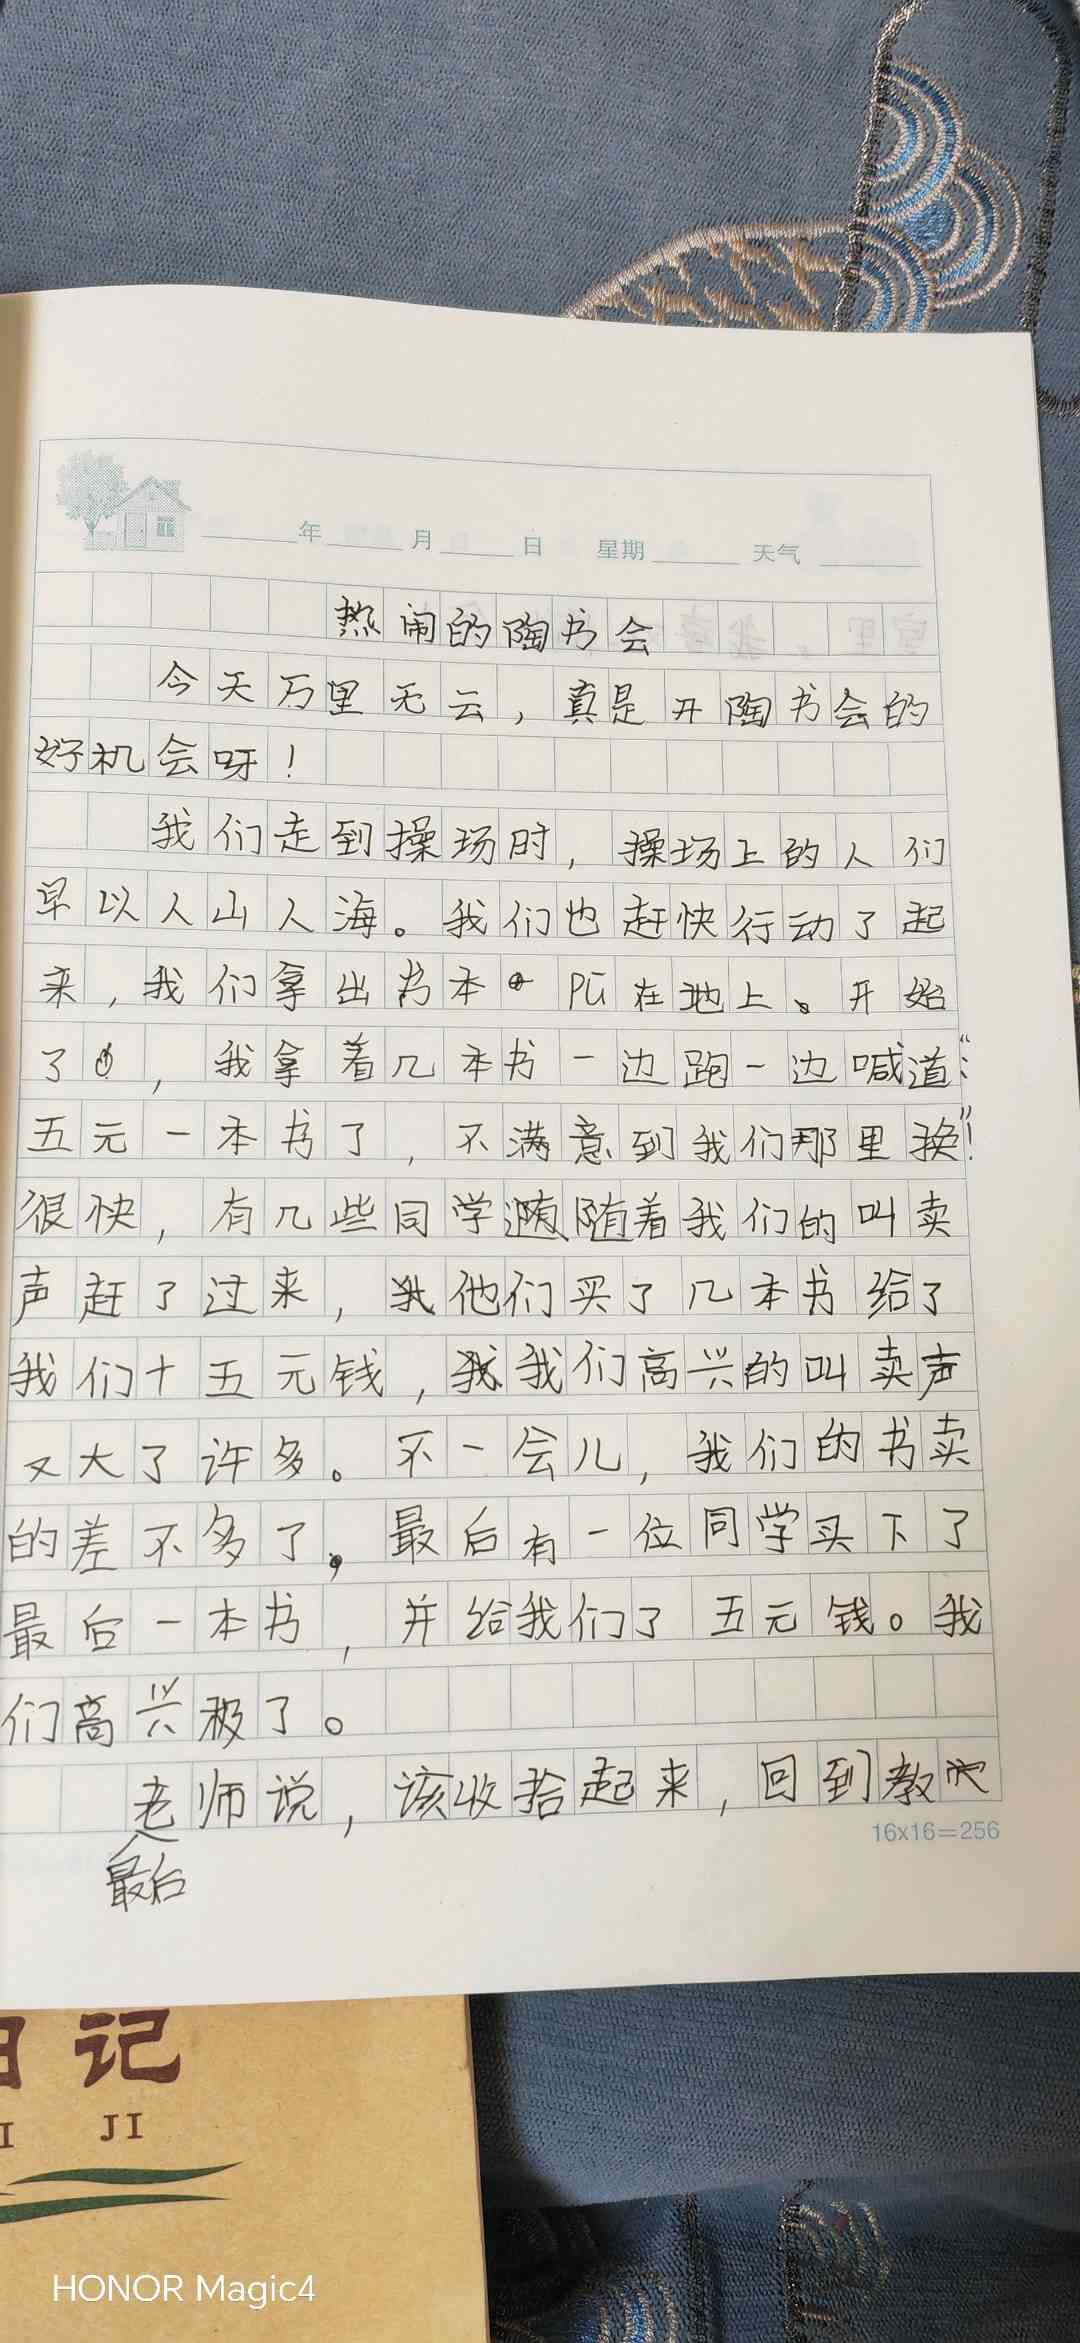 年 月 日 星期 天气
热闹的陶书会
今天万里无云，真是开陶书会的
好机会呀！
我们走到操场时，操场上的人们
早以人山人海。我们也赶快行动了起
来，我们拿出书本 pū在地上。开始
了，我拿着几本书一边跑一边喊道：“
五元一本书了，不满意到我们那里换！”
很快，有几些同学随着我们的叫卖
声赶了过来，他们买了几本书给了
我们十五元钱，我们高兴的叫卖声
又大了许多。不一会儿，我们的书卖
的差不多了，最后有一位同学买下了
最后一本书，并给我们了五元钱。我
们高兴极了。
老师说，该收拾起来，回到教
16x16=256
最后
日记
JI
HONOR Magic4